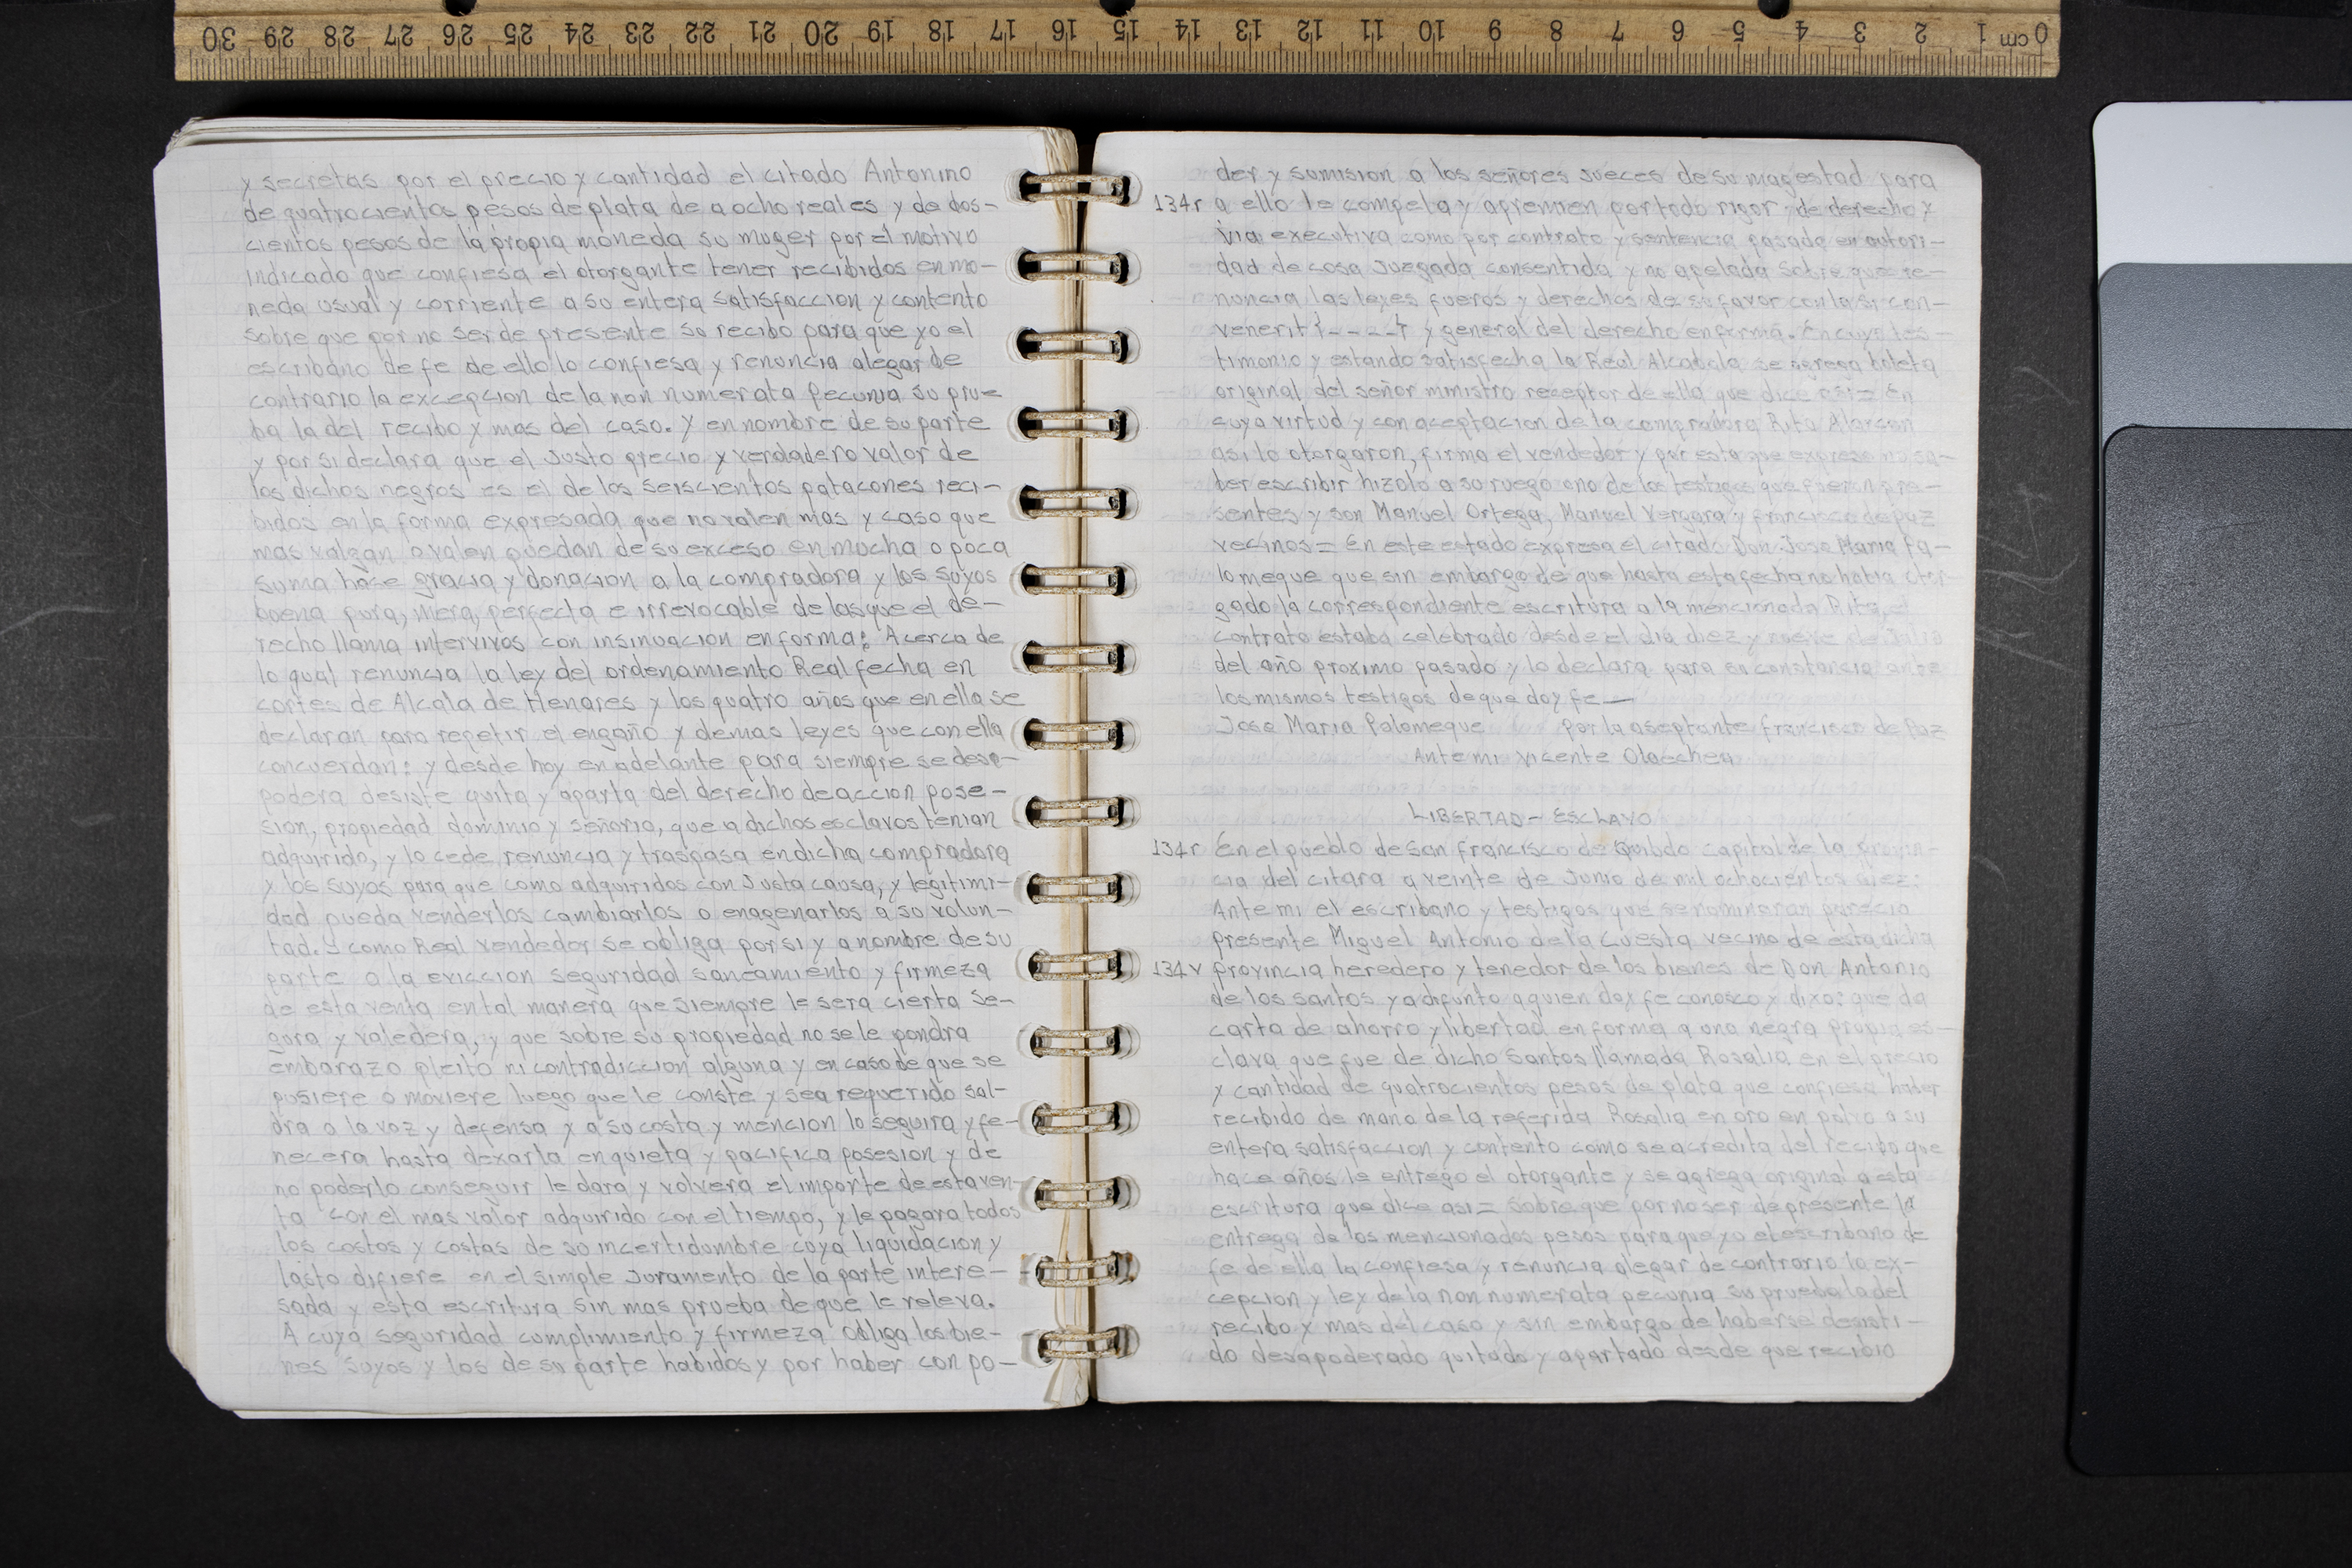 30 29 28 27 26 25 24 23 22 21 20 19 18 17 16 15 14 13 12 11 10 9 8 7 6 5 4 3 2 1 cm 0
y secretas por el precio y cantidad el citado Antonino
de quatrocientos pesos de plata de a ocho reales y de dos-
cientos pesos de la propia moneda su muger por el motivo
indicado que confiesa el otorgante tener recibidos en mo-
neda usual y corriente a su entera satisfaccion y contento
sobre que por no ser de presente su recibo para que yo el
escribano de fe de ello lo confiesa y renuncia alegar de
contrario la excepcion de la non numerata pecunia su prue
ba la del recibo y mas del caso. Y en nombre de su parte
y por si declara que el justo precio y verdadero valor de
los dichos negros es el de los seiscientos patacones reci-
bidos en la forma expresada que no valen mas y caso que
mas valgan o valen quedan de su exceso en mucha o poca
suma hace gracia y donacion a la compradora y los suyos
buena pura, mera, perfecta e irrevocable de las que el de-
recho llama intervivos con insinuacion en forma: Acerca de
lo qual renuncia la ley del ordenamiento Real fecha en
cortes de Alcala de Henares y los quatro años que en ella se
declaran para repetir el engaño y demas leyes que con ella
concuerdan: y desde hoy en adelante para siempre se desa-
podera desiste quita y aparta del derecho de accion pose-
sion, propiedad dominio y señorio, que a dichos esclavos tenian
adquirido, y lo cede, renuncia y traspasa en dicha compradora
y los suyos para que como adquiridos con justa causa, y legitimi-
dad pueda venderlos cambiarlos o enagenarlos a su volun-
tad. Y como Real vendedor se obliga por si y a nombre de su
parte a la eviccion seguridad saneamiento y firmeza
de esta venta en tal manera que siempre le sera cierta se-
gura y valedera, y que sobre su propiedad no se le pondra
embarazo pleito ni contradiccion alguna y en caso de que se
pusiere o moviere luego que le conste y sea requerido sal-
dra a la voz y defensa y a su costa y mencion lo seguira y fe-
necera hasta dexarla en quieta y pacifica posesion y de
no poderlo conseguir le dara y volvera el importe de esta ven-
ta con el mas valor adquirido con el tiempo, y le pagara todos
los costos y costas de so incertidumbre cuya liquidacion y
lasto difiere en el simple juramento de la parte intere-
sada y esta escritura sin mas prueba de que le releva.
A cuya seguridad cumplimiento y firmeza obliga los bie-
nes suyos y los de su parte habidos y por haber con po-
der y sumision a los señores jueces de su magestad para
134r a ello le compela y apremien por todo rigor de derecho y
via executiva como por contrato y sentencia pasada en autori-
dad de cosa juzgada consentida y no apelada sobre que re-
nuncia las leyes fueros y derechos de su favor con la si con-
venerit y general del derecho en forma. En cuyo tes-
timonio y estando satisfecha la Real Alcabala se agrega boleta
original del señor ministro receptor de ella que dice asi = En
cuya virtud y con aceptacion de la compradora Rita Alarcon
asi lo otorgaron, firma el vendedor y por esta que expreso no sa-
ber escribir hizolo a su ruego uno de los testigos que fueron pre-
sentes y son Manuel Ortega, Manuel Vergara y francisco de paz
vecinos = En este estado expresa el citado Don Jose Maria Pa-
lomeque que sin embargo de que hasta esta fecha no habia otor
gado la correspondiente escritura a la mencionada Rita, el
contrato estaba celebrado desde el dia diez y nueve de Julio
del año proximo pasado y lo declara para su constancia ante
los mismos testigos de que doy fe —
Jose Maria Palomeque por la aseptante francisco de Paz
Ante mi Vicente Olaechea
LIBERTAD - ESCLAVO
134r En el pueblo de San francisco de Quibdo capital de la provin-
cia del citara a veinte de Junio de mil ochocientos diez:
Ante mi el escribano y testigos que se nominaran parecio
presente Miguel Antonio de la Cuesta vecino de esta dicha
134v provincia heredero y tenedor de los bienes de Don Antonio
de los santos ya difunto a quien doy fe conosco y dixo: que da
carta de ahorro y libertad en forma a una negra propia es-
clava que fue de dicho Santos llamada Rosalia en el precio
y cantidad de quatrocientos pesos de plata que confiesa haber
recibido de mano de la referida Rosalia en oro en polvo a su
entera satisfaccion y contento como se acredita del recibo que
hace años le entrego el otorgante y se agrega original a esta
escritura que dice asi = Sobre que por no ser de presente la
entrega de los mencionados pesos para que yo el escribano de
fe de ella la confiesa y renuncia alegar de contrario la ex-
cepcion y ley de la non numerata pecunia su prueba la del
recibo y mas del caso y sin embargo de haberse desisti-
do desapoderado quitado y apartado desde que recibio